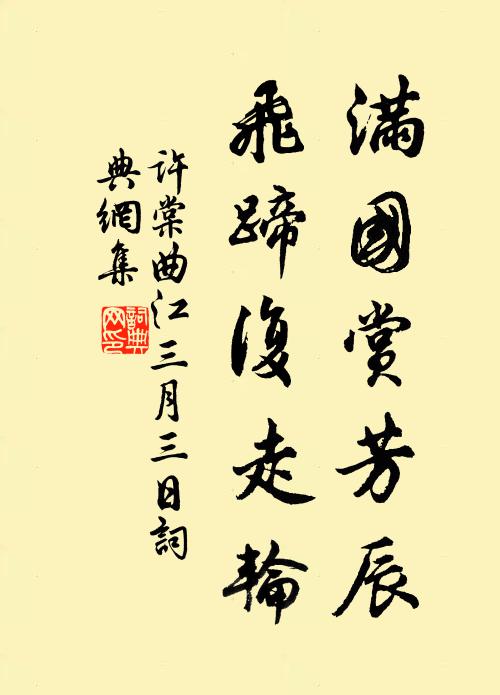 滿國賞芳辰
飛蹄復走輪
許棠曲江三月三日詞
典網集
詞典
网印